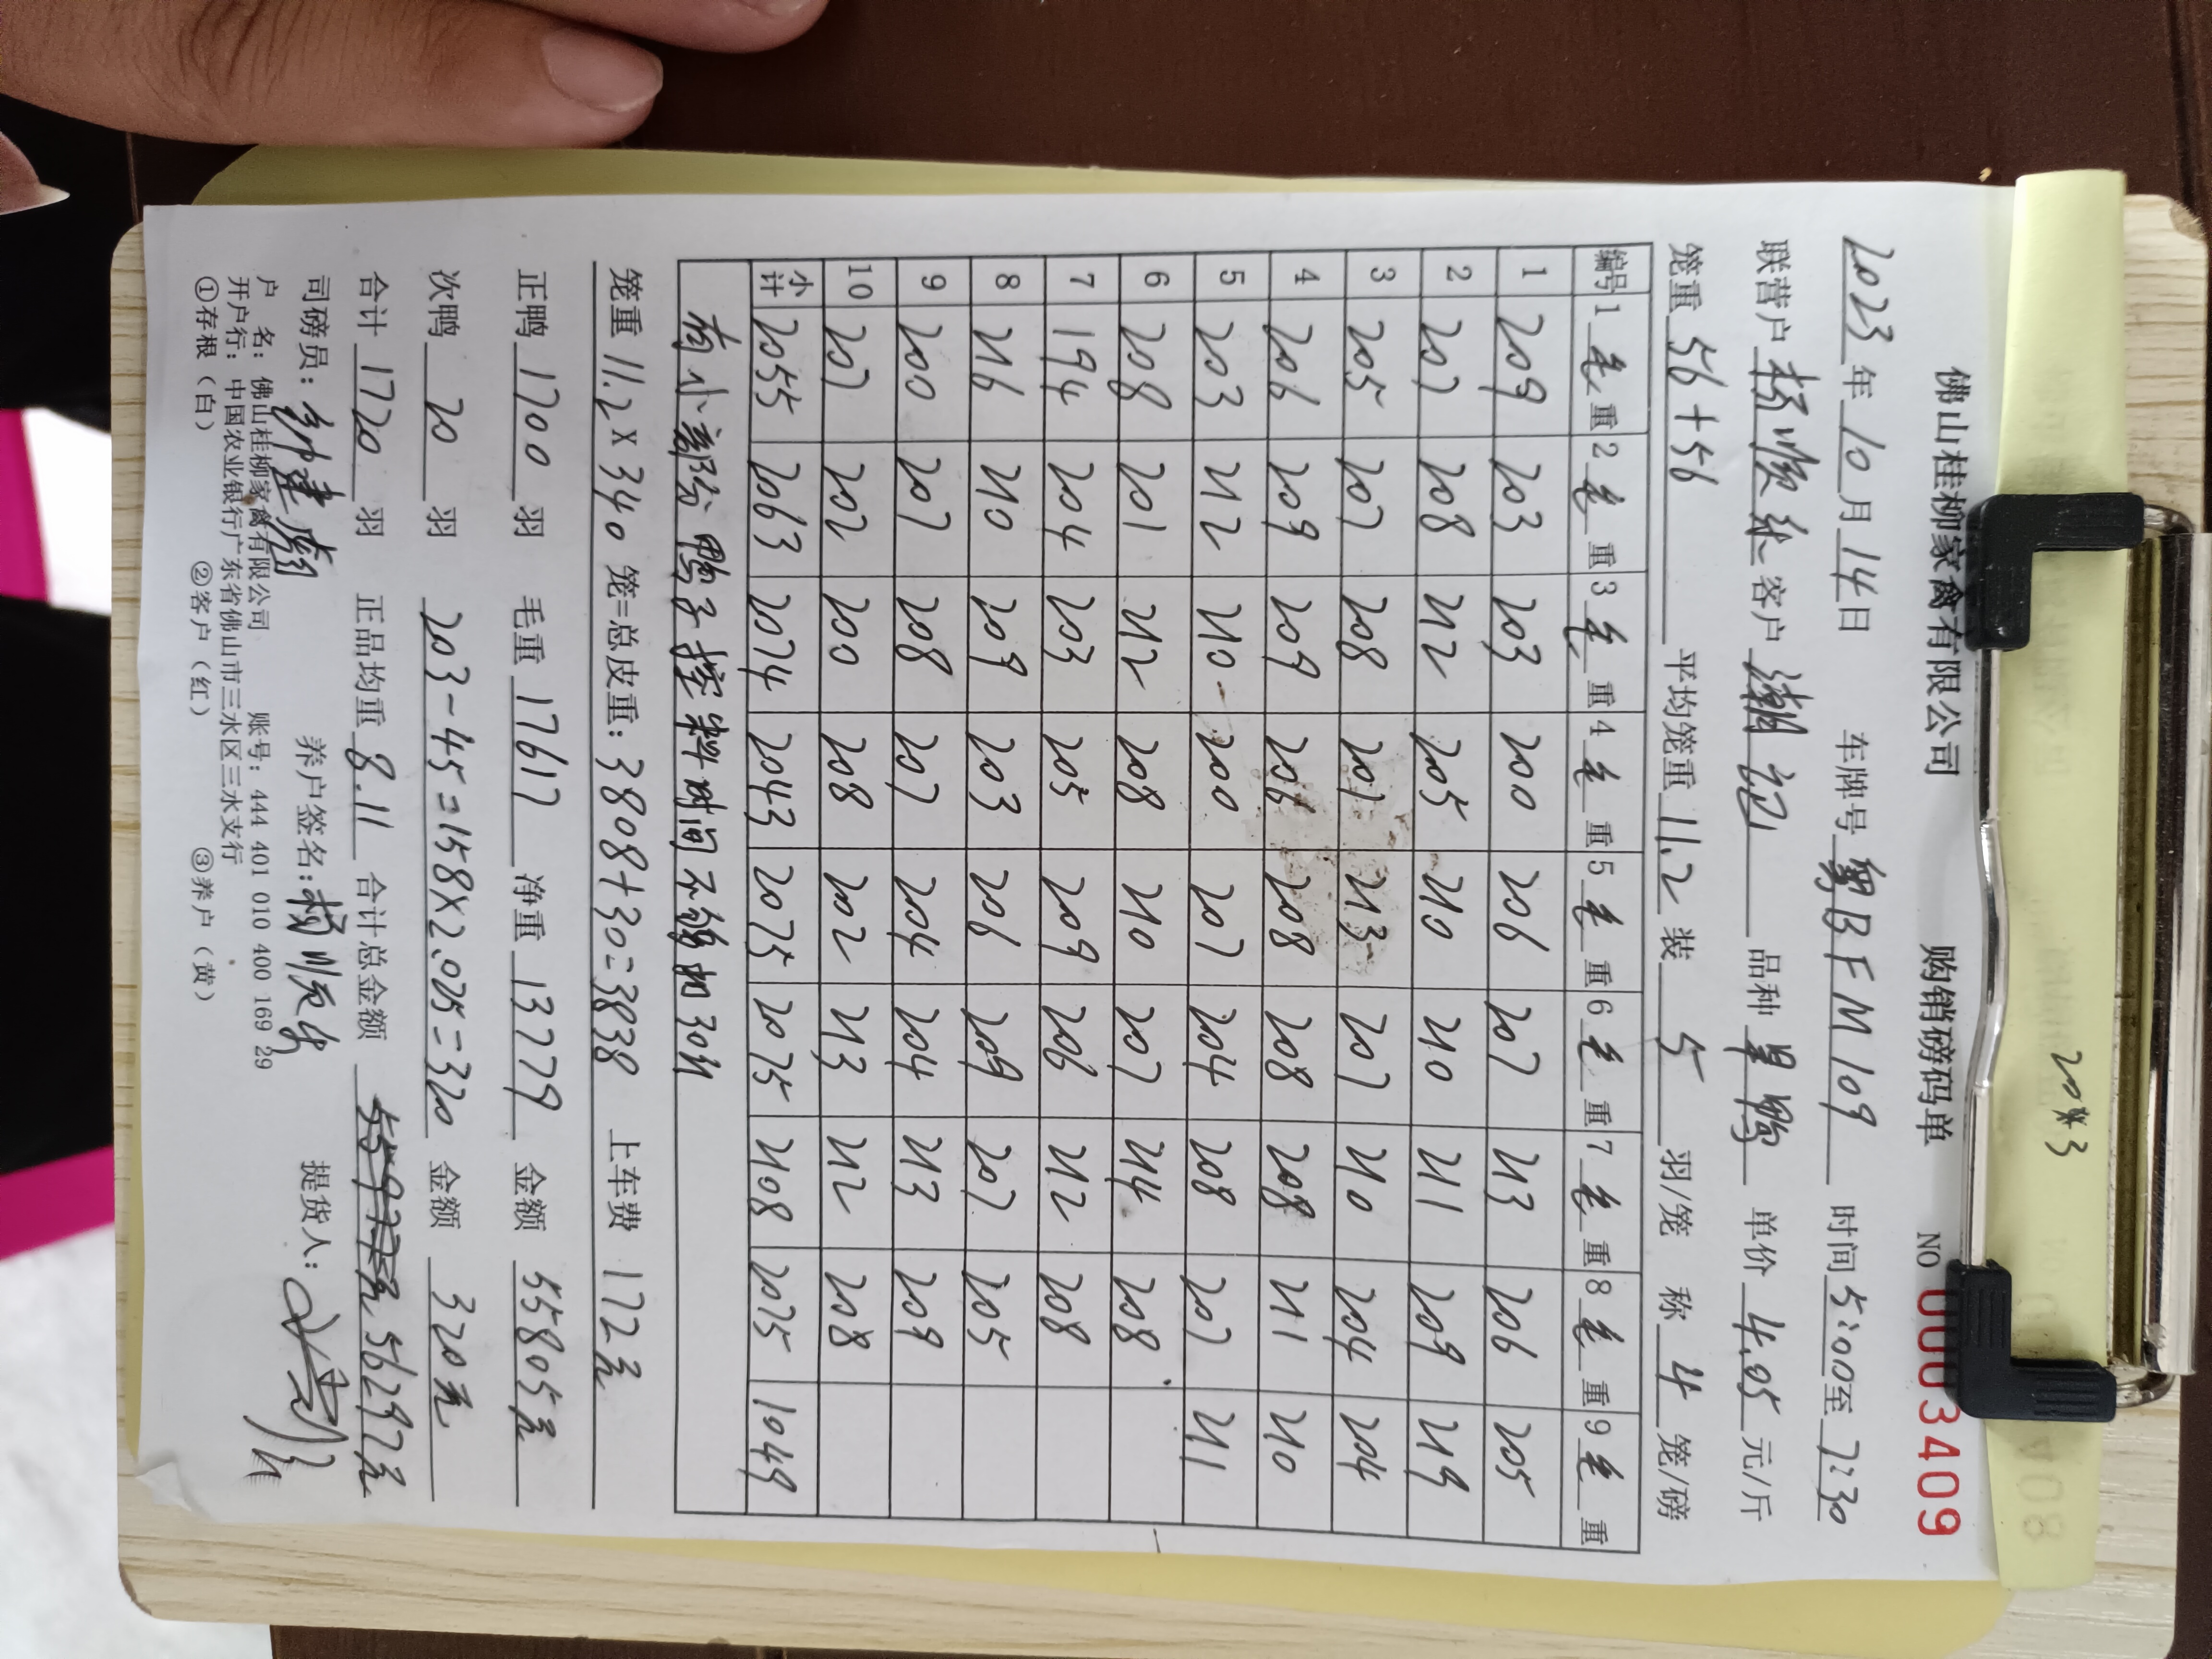 20#3
佛山桂柳家禽有限公司 购销磅码单 NO 0003409
2023年10月14日 车牌号 粤BFM109 时间 5:00至7:30
联营户 杨顺 客户 潮记 品种 旱鸭 单价 4.05 元/斤
笼重 56+56 平均笼重 11.2 装 5 羽/笼 称 4 笼/磅
编号 1毛重 2毛重 3毛重 4毛重 5毛重 6毛重 7毛重 8毛重 9毛重
1 209 203 203 200 206 207 213 206 205
2 207 208 212 205 210 210 211 209 219
3 205 207 208 207 213 207 210 204 204
4 206 209 209 206 208 208 208 211 210
5 203 212 210 200 207 204 208 207 211
6 208 201 212 208 210 207 214 208
7 194 204 203 205 209 206 212 208
8 216 210 209 203 206 209 207 205
9 200 207 208 207 204 204 213 209
10 207 202 200 208 202 213 212 208
小计 2055 2063 2074 2043 2075 2075 2108 2075 1049
有小部份鸭子控料时间不够扣30斤
笼重 11.2×340 笼=总皮重:3808+30=3838 上车费 172元
正鸭 1700 羽 毛重 17617 净重 13779 金额 55805元
次鸭 20 羽 203-45=158×2.025=320 金额 320元
合计 1720 羽 正品均重 8.11 合计总金额 56297元
司磅员: 养户签名: 杨顺 提货人:
户 名: 佛山桂柳家禽有限公司 账号: 444 401 010 400 169 29
开户行: 中国农业银行广东省佛山市三水区三水支行
①存根（白） ②客户（红） ③养户（黄）